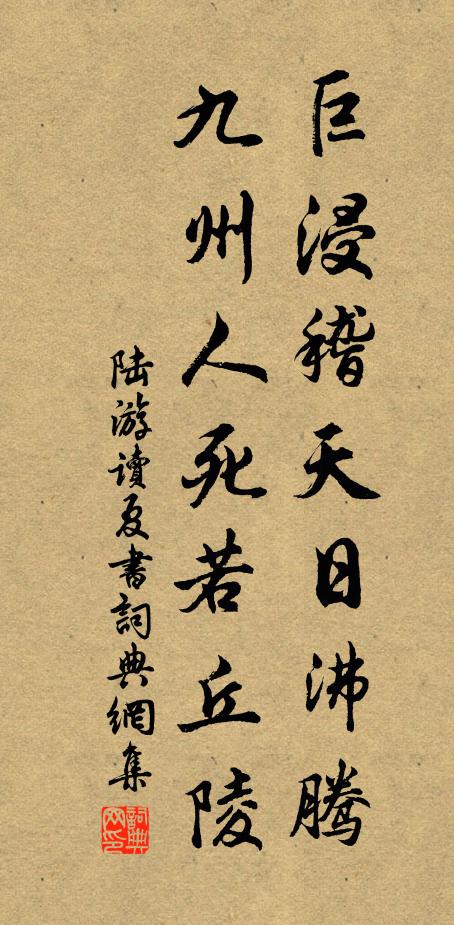 巨浸稽天日沸腾
九州人死若丘陵
陆游读夏書詞典網集
詞典网印